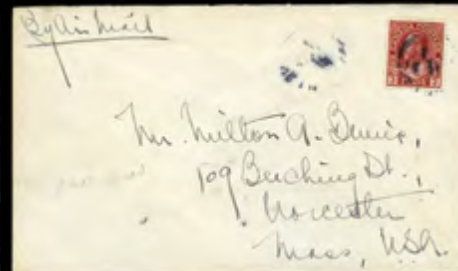 By Air Mail
Mr. Milton A.
109 Beeching St.,
Worcester
Mass, USA.